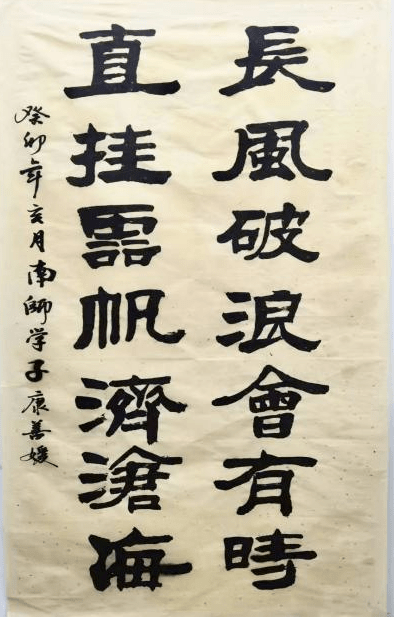 長風破浪會有時
直挂雲帆濟滄海
癸卯年亥月南師学子康善媛